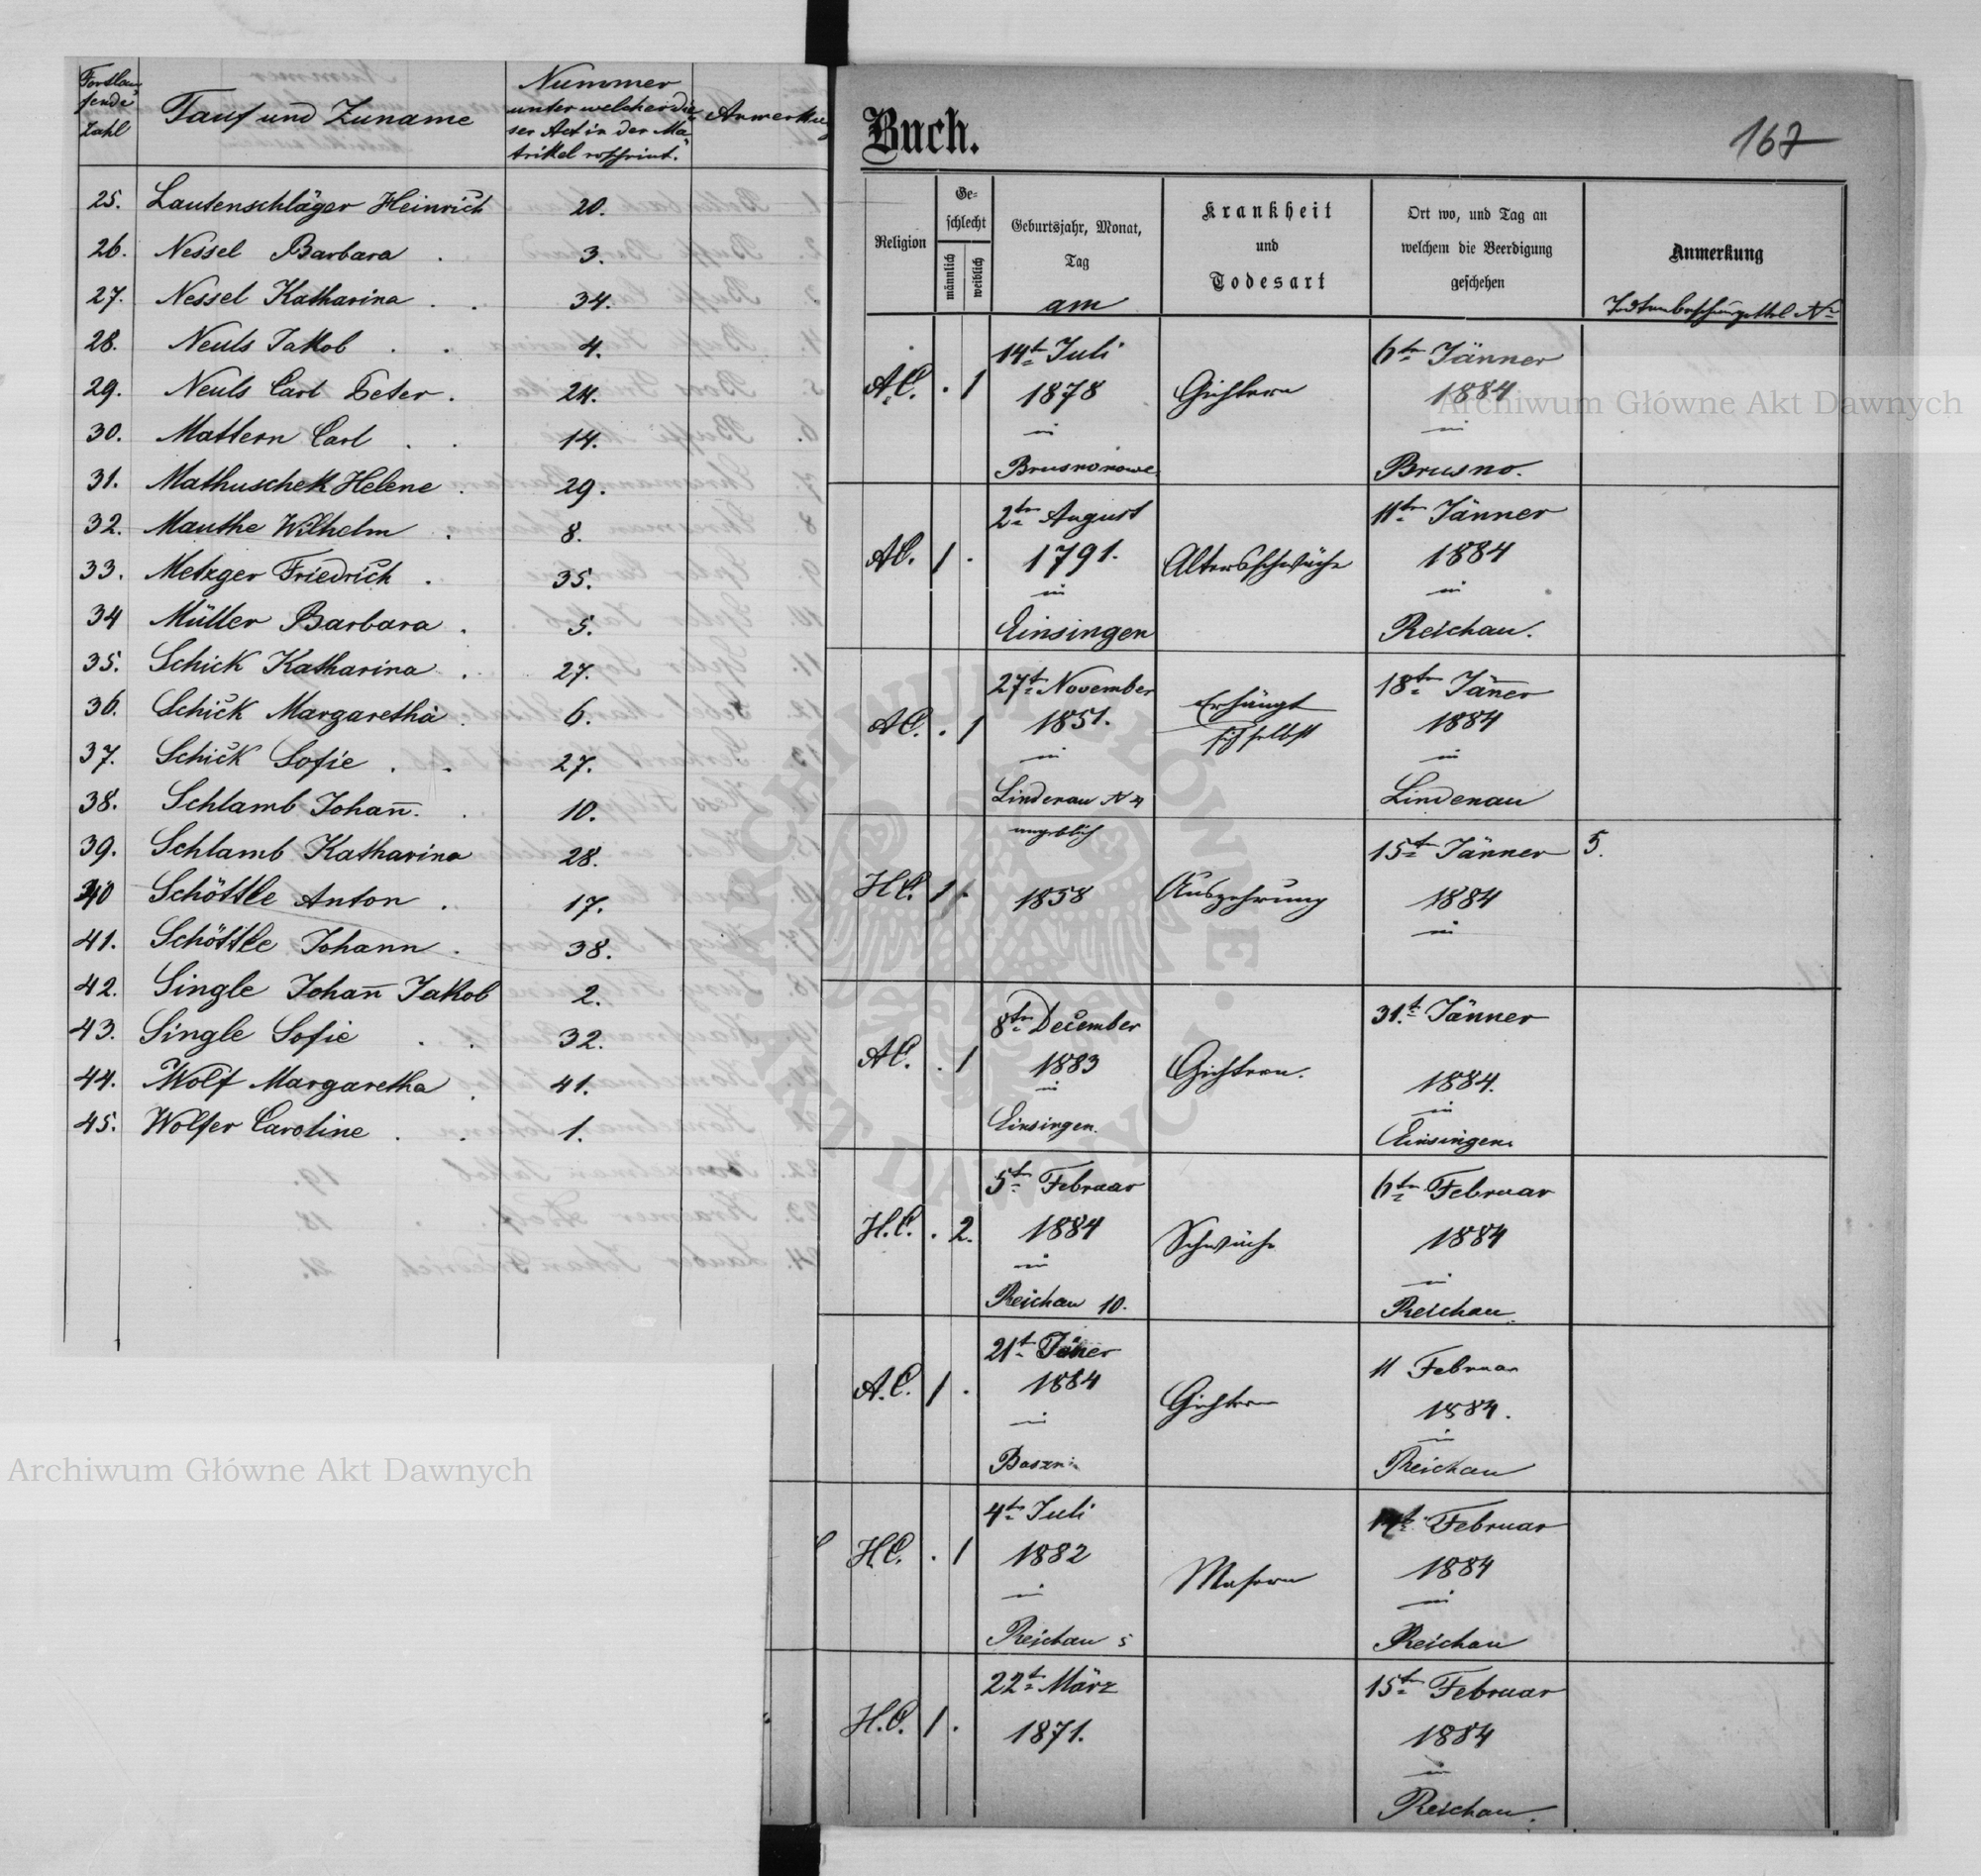 Fortlau-
fende
Zahl
Tauf und Zuname
Nummer
unter welcher die-
ser Act in der Ma-
trikel erscheint.
Anmerkung
25. Lautenschläger Heinrich 20.
26. Nessel Barbara . 3.
27. Nessel Katharina . . 34.
28. Neuls Jakob . . 4.
29. Neuls Carl Peter . 24.
30. Mattern Carl . . 14.
31. Mathuschek Helene . 29.
32. Mauthe Wilhelm . 8.
33. Metzger Friedrich . 35.
34 Müller Barbara . 5.
35. Schick Katharina . 27.
36. Schick Margaretha . 6.
37. Schick Sofie . . 27.
38. Schlamb Johan̄. . 10.
39. Schlamb Katharina 28.
40 Schöttle Anton . 17.
41. Schöttle Johann . 38.
42. Single Johan̄ Jakob 2.
43. Single Sofie . . 32.
44. Wolf Margaretha . 41.
45. Wolfer Caroline . . 1.
Archiwum Główne Akt Dawnych
Buch.
167
Religion
Ge-
schlecht
männlich
weiblich
Geburtsjahr, Monat,
Tag
am
Krankheit
und
Todesart
Ort wo, und Tag an
welchem die Beerdigung
geschehen
Anmerkung
Todtenbeschauzettel No
14t Juli 6tn Jänner
A.C. . 1 1878 Gichtern 1884
in in
Brusnonowe Brusno.
Archiwum Główne Akt Dawnych
2tn August 11tn Jänner
AC. 1 . 1791. Altersschwäche 1884
in in
Einsingen Reichau.
27t November Erhängt 18tn Jän̄er
AC. . 1 1851. sich selbst 1884
in in
Lindenau N 4 Lindenau
angeblich 15t Jänner 5.
H.C. 1 . 1858 Auszehrung 1884
in
8tn December 31.t Jänner
AC. . 1 1883 Gichtern. 1884.
in in
Einsingen. Einsingen.
5t Februar 6tn Februar
H.C. . 2. 1884 Schwäche 1884
in in
Reichau 10. Reichau.
21t Jäner 11 Februar
A.C. 1 . 1884 Gichtern 1884.
in in
Baszni Reichau
4t Juli 14t Februar
H.C. . 1 1882 Masern 1884
in in
Reichau 5 Reichau
22t März 15t Februar
H.C. 1 . 1871. 1884
in
Reichau.
ARCHIWUM GŁÓWNE · AKT DAWNYCH ·